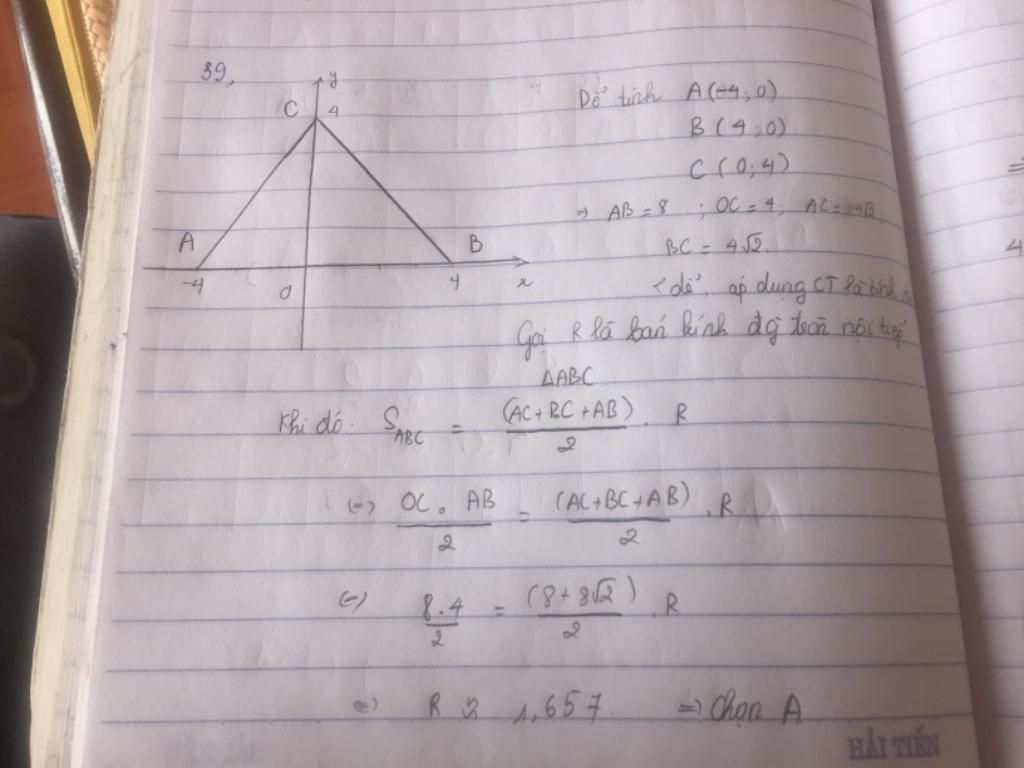 39,
y
C 4
A B
-4 O 4 x
Dễ tính A(-4; 0)
B (4; 0)
C (0; 4)
=> AB = 8 ; OC = 4; AC = 4√2
BC = 4√2.
<dễ, áp dụng CT là tính
Gọi R là bán kính đg tròn nội tiếp
ΔABC
Khi đó: S_ABC = (AC + BC + AB)/2 . R
(=) OC . AB/2 = (AC + BC + AB)/2 . R
(=) 8.4/2 = (8 + 8√2)/2 . R
(=) R ≈ 1,657 => Chọn A
HẢI TIẾN